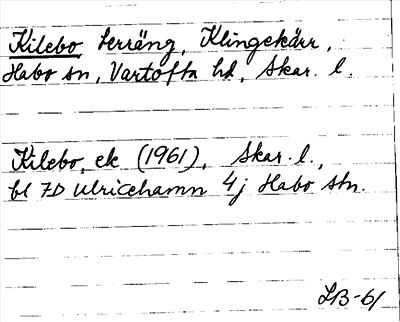 Kilebo, terräng, Klingekärr,
Habo sn, Vartofta hd, Skar. l.
Kilebo, ek (1961), Skar. l.,
bl 7D Ulricehamn 4j Habo stn.
LB-61